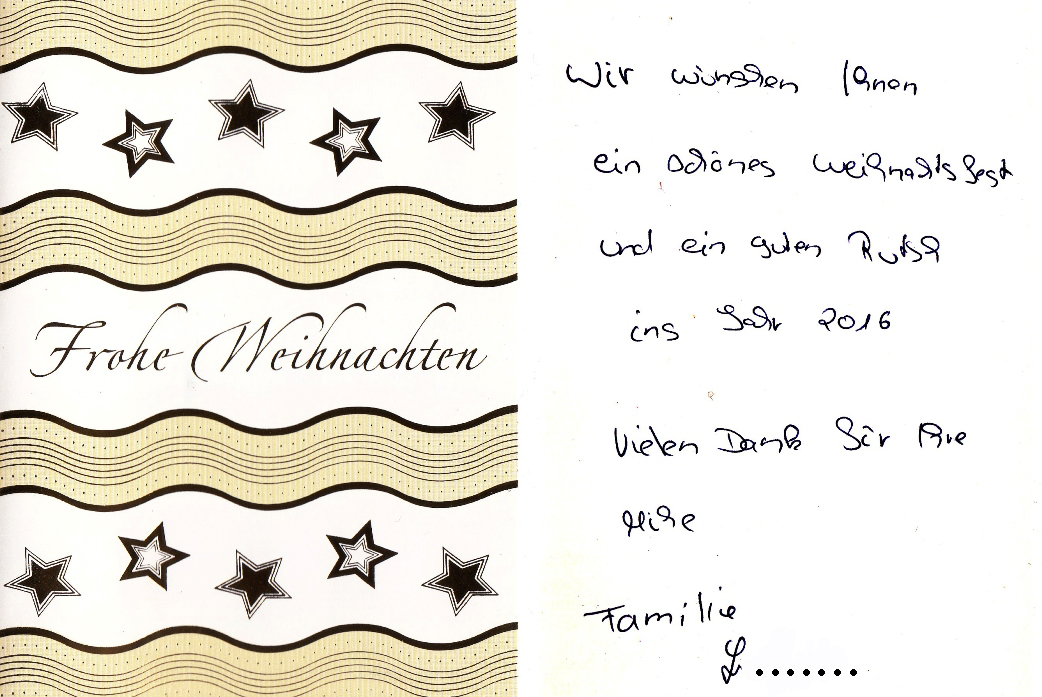 Frohe Weihnachten
Wir wünschen Ihnen
ein schönes Weihnachtsfest
und ein guten Rutsch
ins Jahr 2016
Vielen Dank für Ihre
Mühe
Familie
L.......